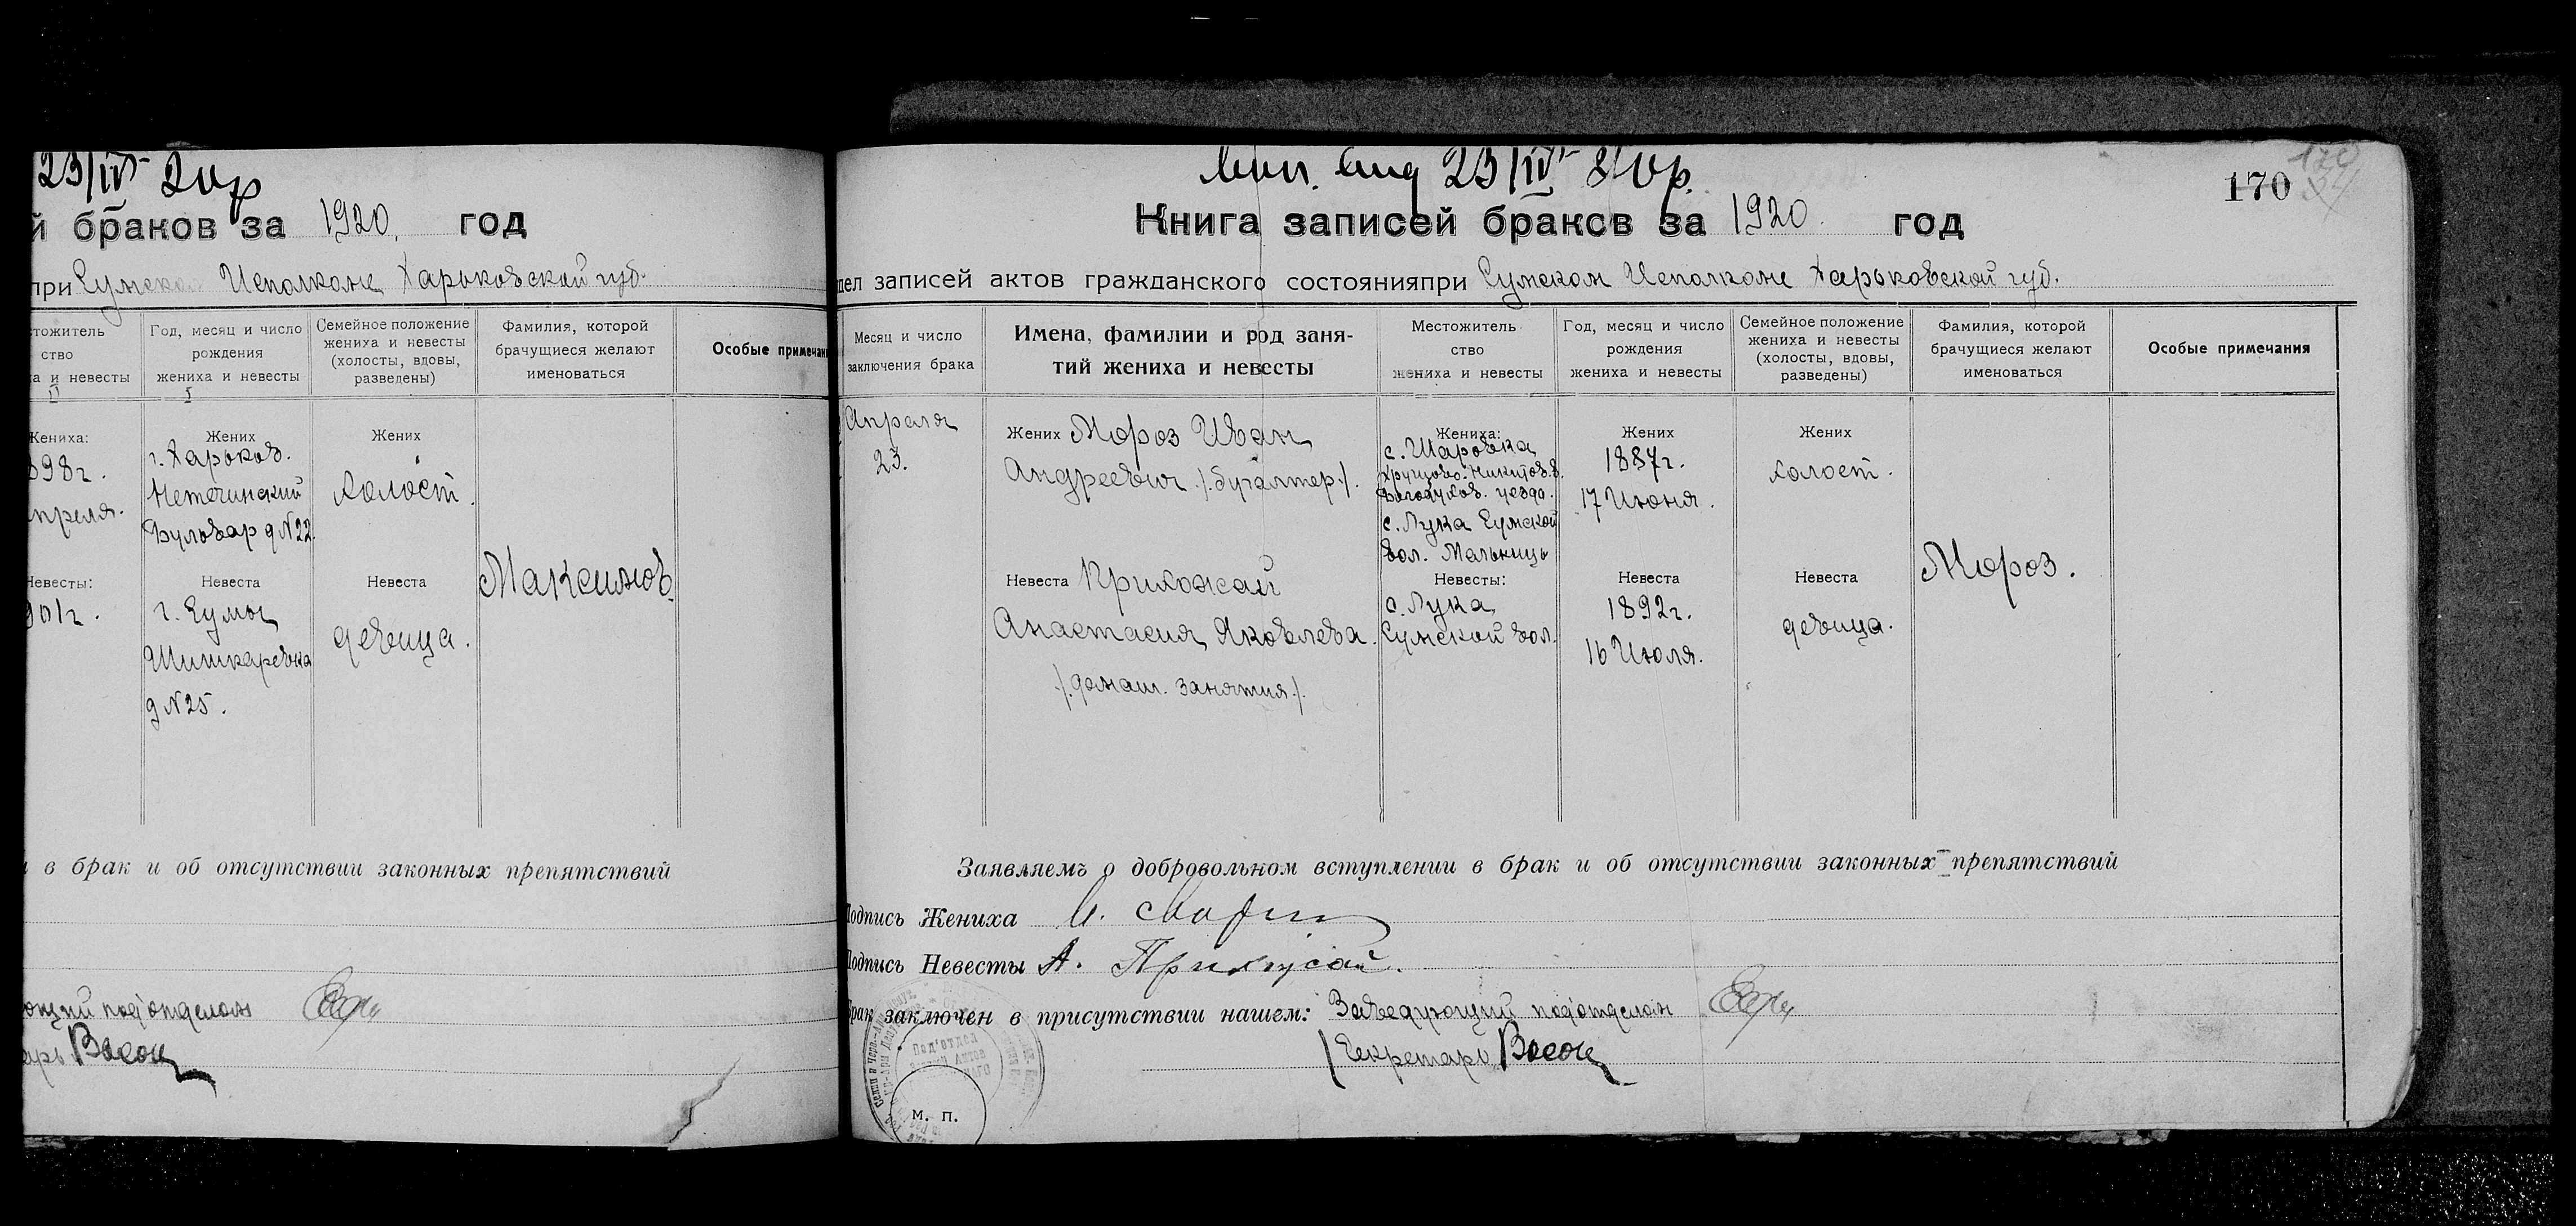 23/IV 20 р
й браков за 1920. год
при Сумском Исполкоме Харьковской губ.
стожитель
ство
ха и невесты
Год, месяц и число
рождения
жениха и невесты
Семейное положение
жениха и невесты
(холосты, вдовы,
разведены)
Фамилия, которой
брачущиеся желают
именоваться
Особые примечани
Жениха:
898г.
преля.
Жених
г. Харьков.
Нетечинский
Бульвар д N22.
Жених
холост.
Максимов.
Невесты:
901г.
Невеста
г. Сумы
Шишкаревка
д N25.
Невеста
девица.
и в брак и об отсутствии законных препятствий
ющий под'отделом
арь
170
Книга записей браков за 1920. год
дел записей актов гражданского состоянияпри Сумском Исполкоме Харьковской губ.
Месяц и число
заключения брака
Имена, фамилии и род заня-
тий жениха и невесты
Местожитель
ство
жениха и невесты
Год, месяц и число
рождения
жениха и невесты
Семейное положение
жениха и невесты
(холосты, вдовы,
разведены)
Фамилия, которой
брачущиеся желают
именоваться
Особые примечания
Апреля
23.
Жених Мороз Иван
Андреевич /.бугалтер./.
Невеста Прихожай
Анастасия Яковлева.
/.домаш. занятия./.
Жениха:
с. Шаровка
Хрущово-Никитов. в.
Богодухов. уезда.
с. Лука Сумской
вол. Мальниць
Невесты:
с. Лука
Сумской вол.
Жених
1887г.
17 Июня.
Невеста
1892г.
16 Июля.
Жених
холост.
Невеста
девица.
Мороз.
Заявляемъ о добровольном вступлении в брак и об отсутствии законных препятствий
Подпись Жениха И. Мороз
Подпись Невесты А. Прихожай.
Брак заключен в присутствии нашем: Заведующий под'отделом
Секретарь
Под'отдел
м. п.